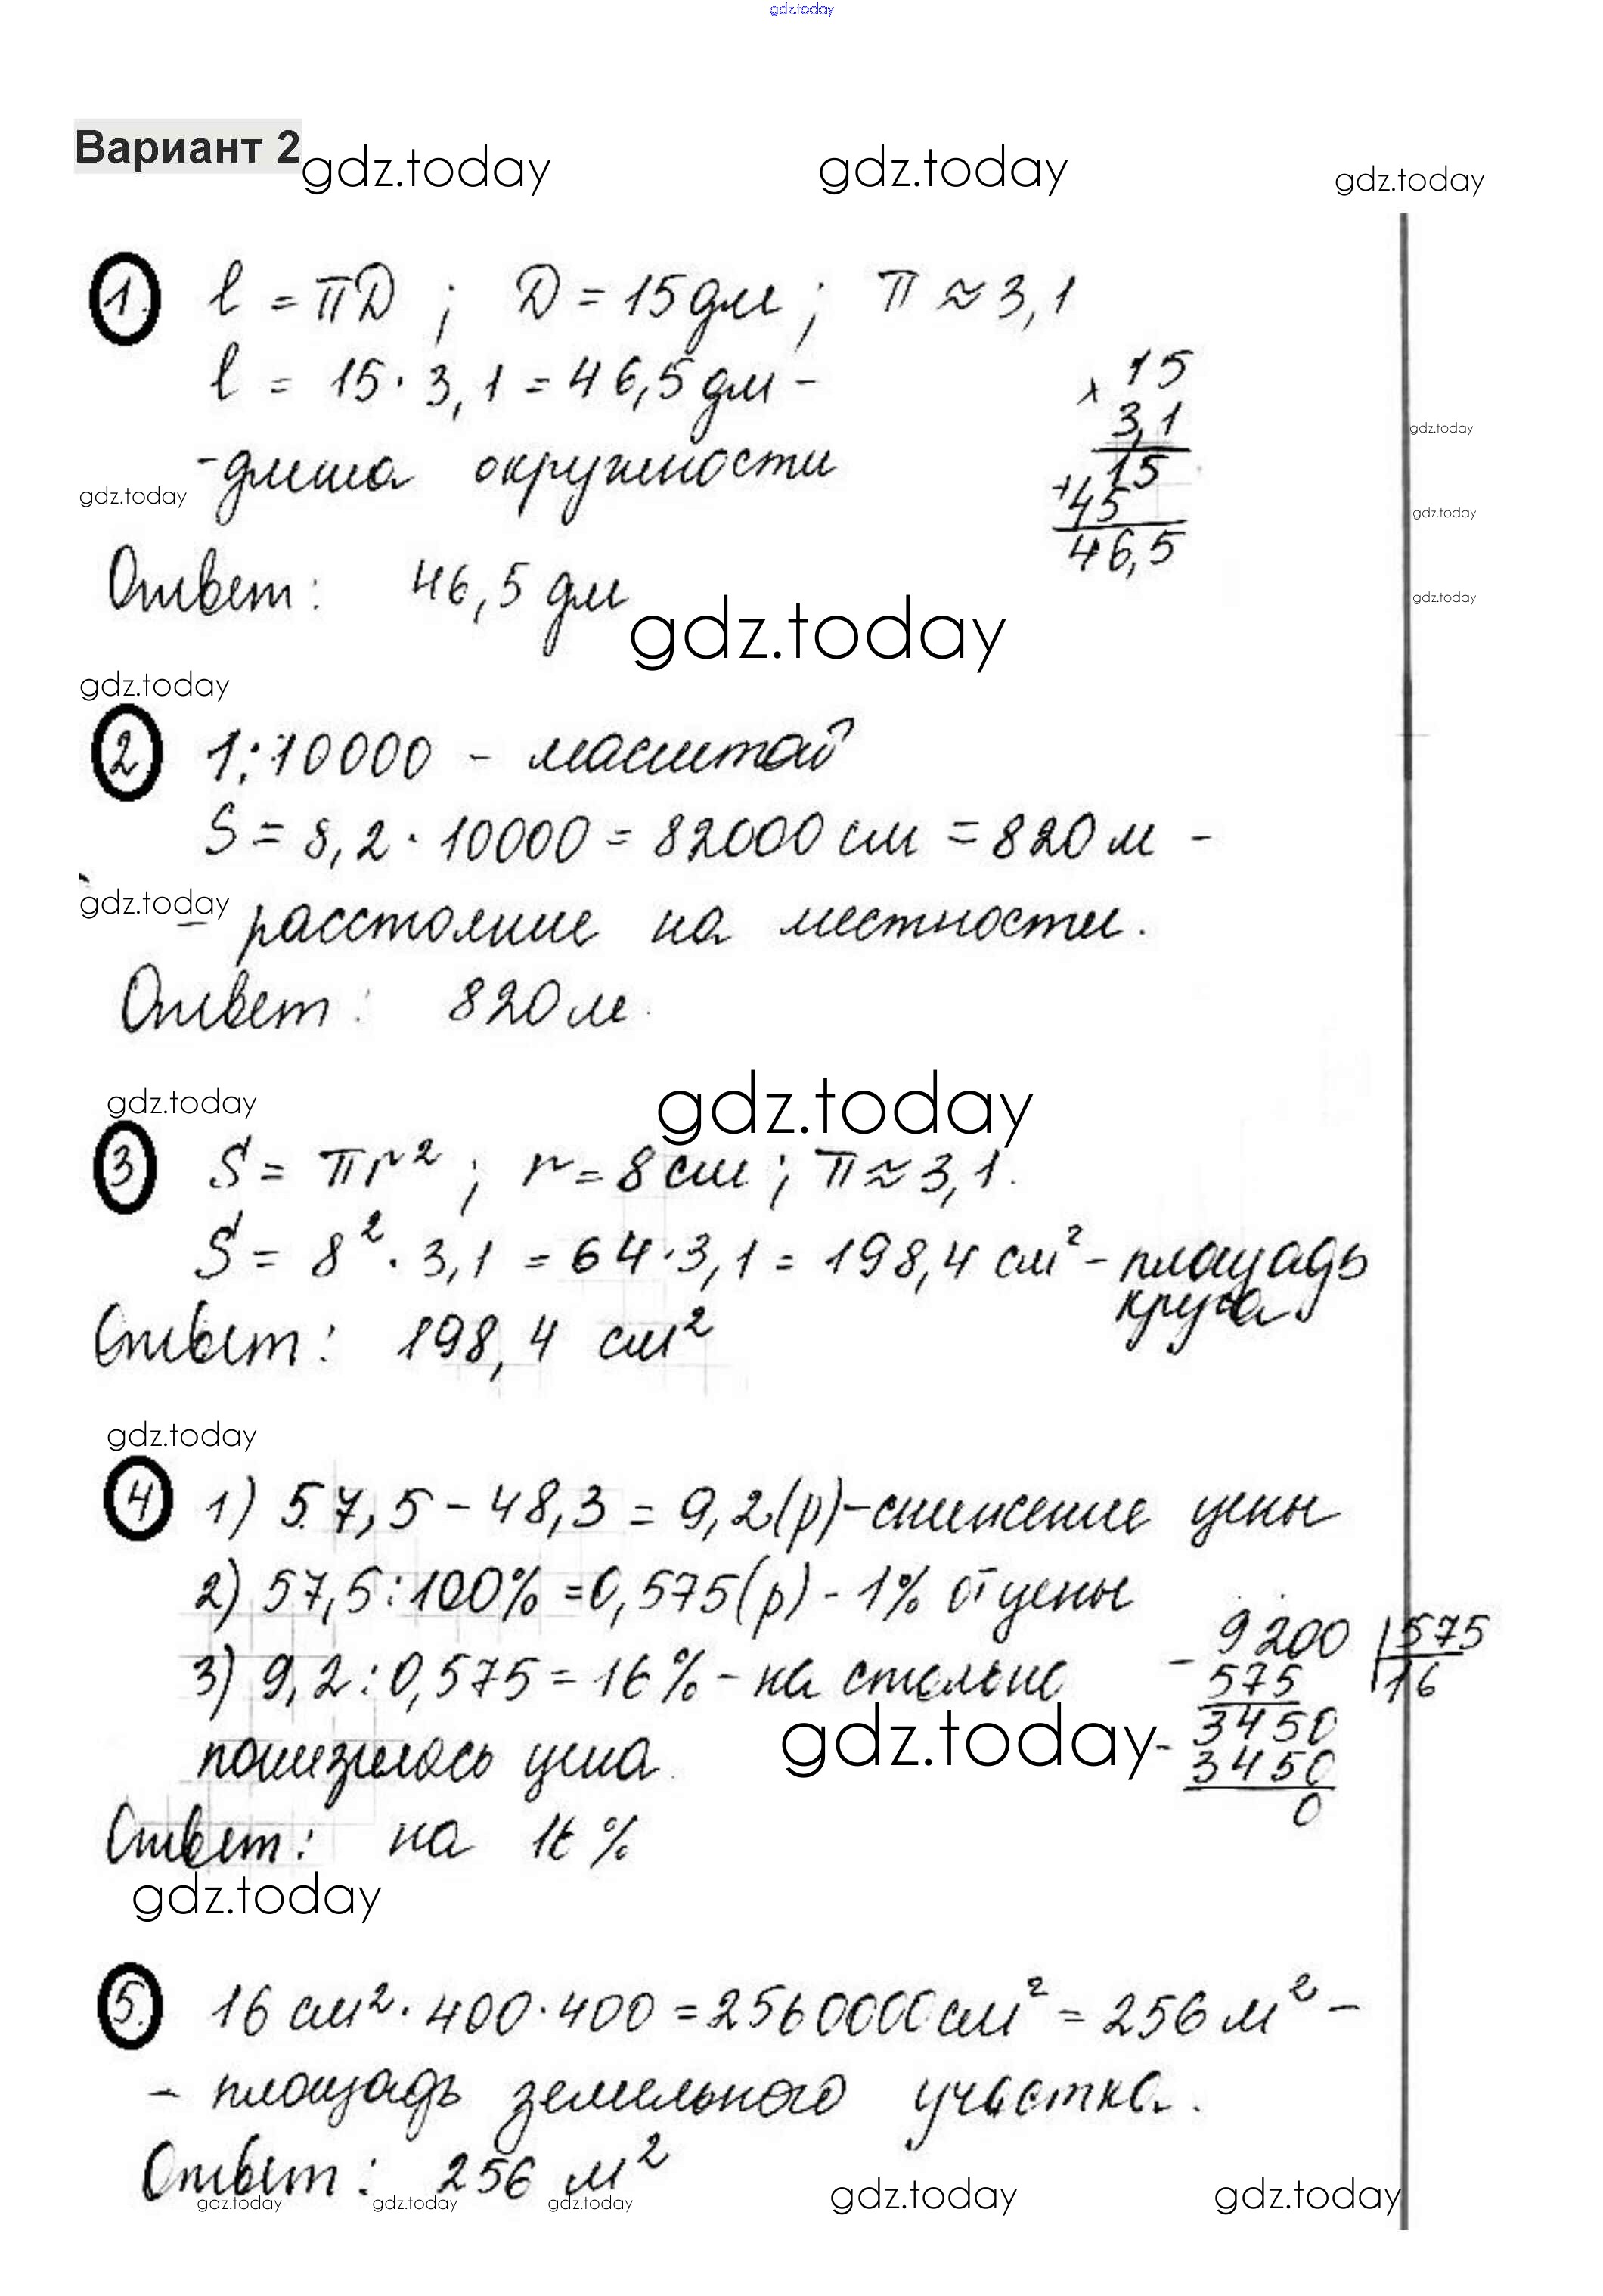 gdz.today
Вариант 2
gdz.today gdz.today gdz.today
1. l = πD ; D = 15 дм ; π ≈ 3,1
l = 15 · 3,1 = 46,5 дм -
- длина окружности
gdz.today
Ответ: 46,5 дм
× 15
3,1
+ 15
45
46,5
gdz.today
gdz.today
gdz.today
gdz.today
gdz.today
2 1:10000 - масштаб
S = 8,2 · 10000 = 82000 см = 820 м -
gdz.today
- расстояние на местности.
Ответ: 820 м.
gdz.today gdz.today
3 S = πr² ; r = 8 см ; π ≈ 3,1.
S = 8² · 3,1 = 64 · 3,1 = 198,4 см² - площадь
круга
Ответ: 198,4 см²
gdz.today
4 1) 57,5 - 48,3 = 9,2 (р) - снижение цены
2) 57,5 : 100% = 0,575 (р) - 1% от цены
3) 9,2 : 0,575 = 16% - на столько
понизилась цена.
Ответ: на 16 %
- 9200 | 575
575 16
- 3450
3450
0
gdz.today
gdz.today
5. 16 см² · 400 · 400 = 2560000 см² = 256 м² -
- площадь земельного участка.
Ответ: 256 м²
gdz.today gdz.today gdz.today gdz.today gdz.today